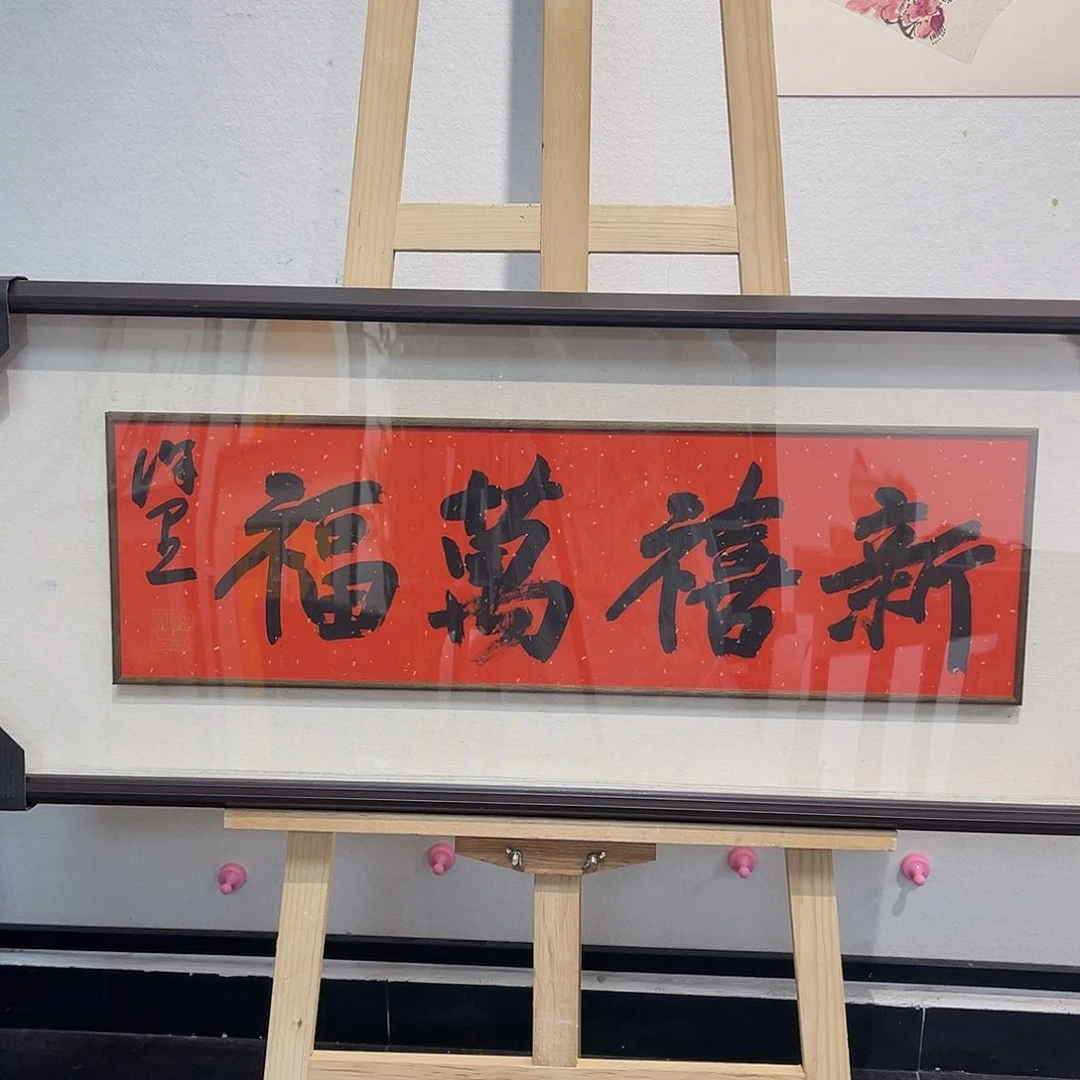 新禧萬福